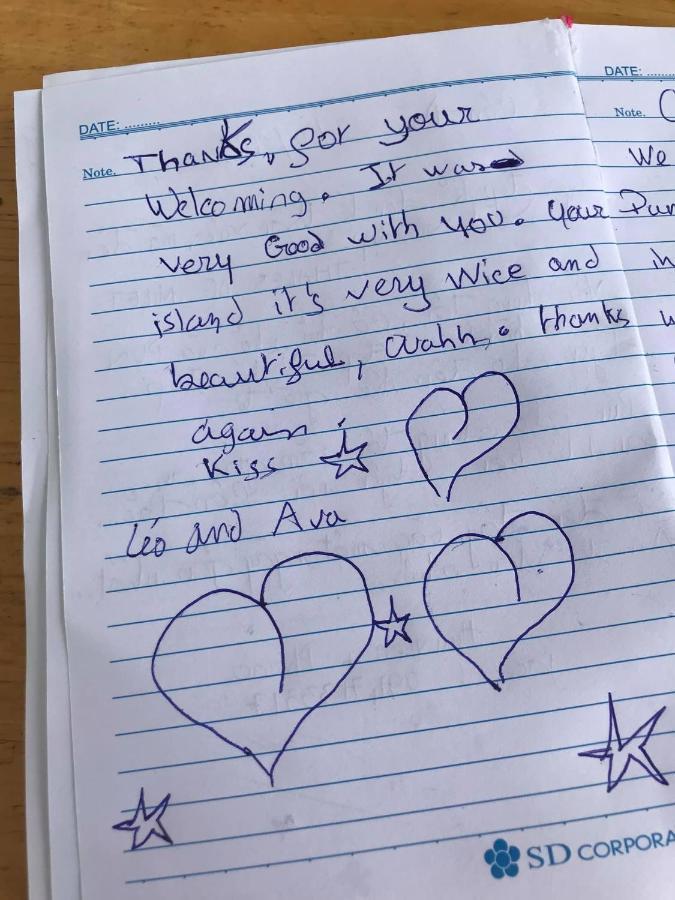 DATE: .........
Note. Thanks, for your
Welcoming. It was
very Good with you. your
island it's very Nice and
beautiful, Ouahh. thanks
again!
Kiss
Léo and Ava
SD CORPORA
DATE: ........
Note.
We